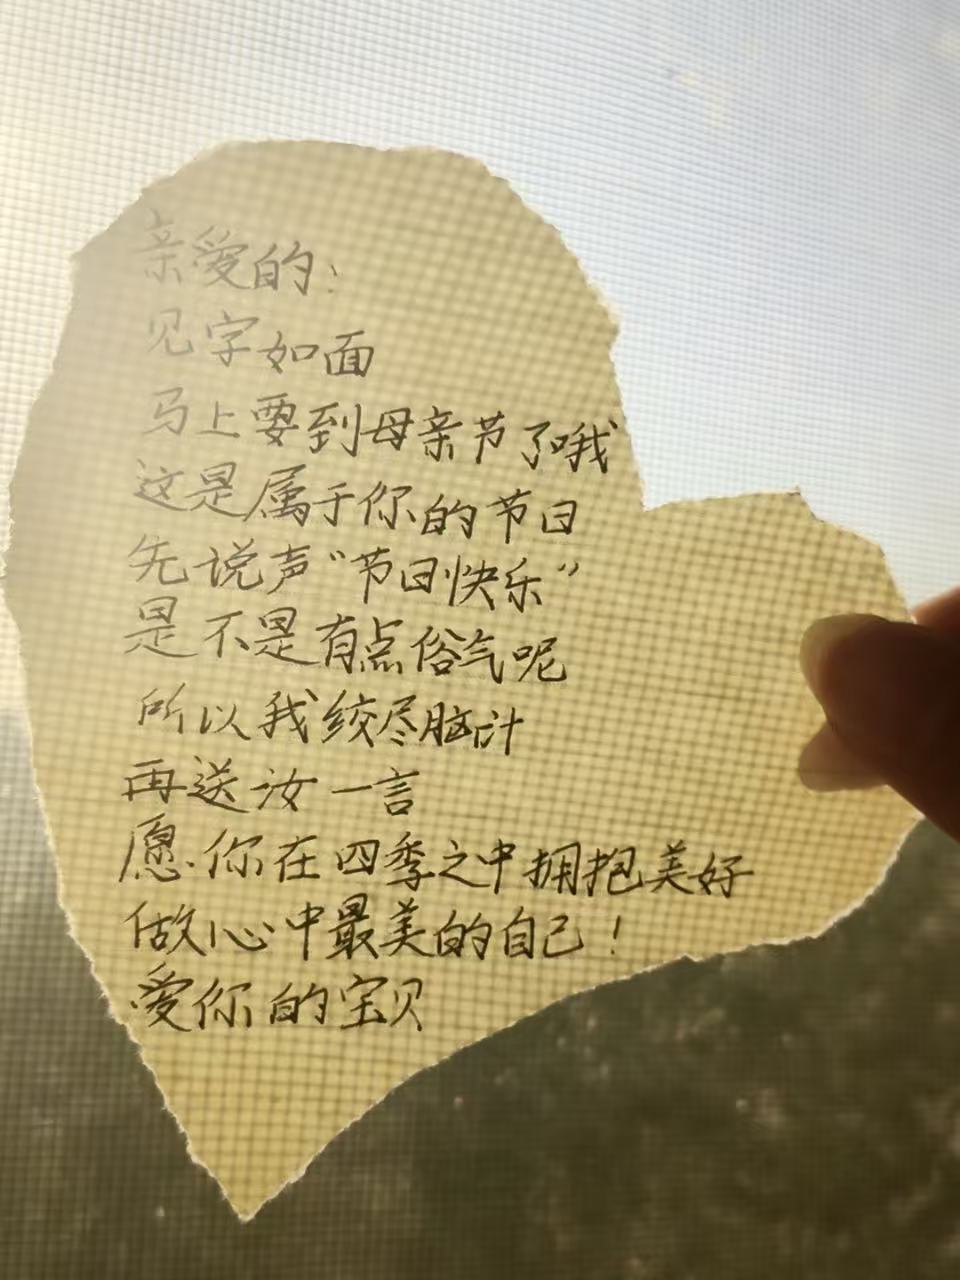 亲爱的：
见字如面
马上要到母亲节了哦
这是属于你的节日
先说声“节日快乐”
是不是有点俗气呢
所以我绞尽脑计
再送汝一言
愿你在四季之中拥抱美好
做心中最美的自己！
爱你的宝贝